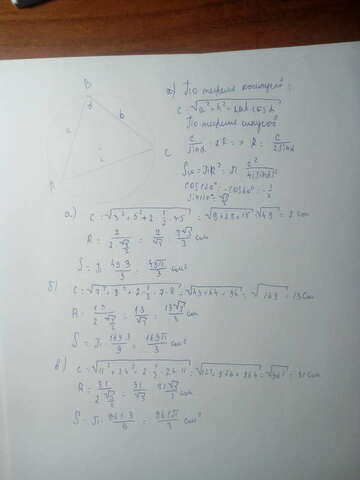 B
α
a
b
A
c
C
а) По теореме косинусов:
c = √a² + b² - 2ab cos α
По теореме синусов
c/sin α = 2R => R = c/2 sin α
S = πR² = π · c²/4 sin² α
cos 120° = -cos 60° = -1/2
sin 120° = √3/2
а) c = √3² + 5² + 2 · 1/2 · 3 · 5 = √9 + 25 + 15 = √49 = 7 см
R = 7/2 · √3/2 = 7/√3 = 7√3/3 см
S = π · 49 · 3/9 = 49π/3 см²
б) c = √7² + 8² + 2 · 1/2 · 7 · 8 = √49 + 64 + 56 = √169 = 13 см
R = 13/2 · √3/2 = 13/√3 = 13√3/3 см
S = π · 169 · 3/9 = 169π/3 см²
в) c = √11² + 24² + 2 · 1/2 · 24 · 11 = √121 + 576 + 264 = √961 = 31 см
R = 31/2 · √3/2 = 31/√3 = 31√3/3 см
S = π · 961 · 3/9 = 961π/3 см²